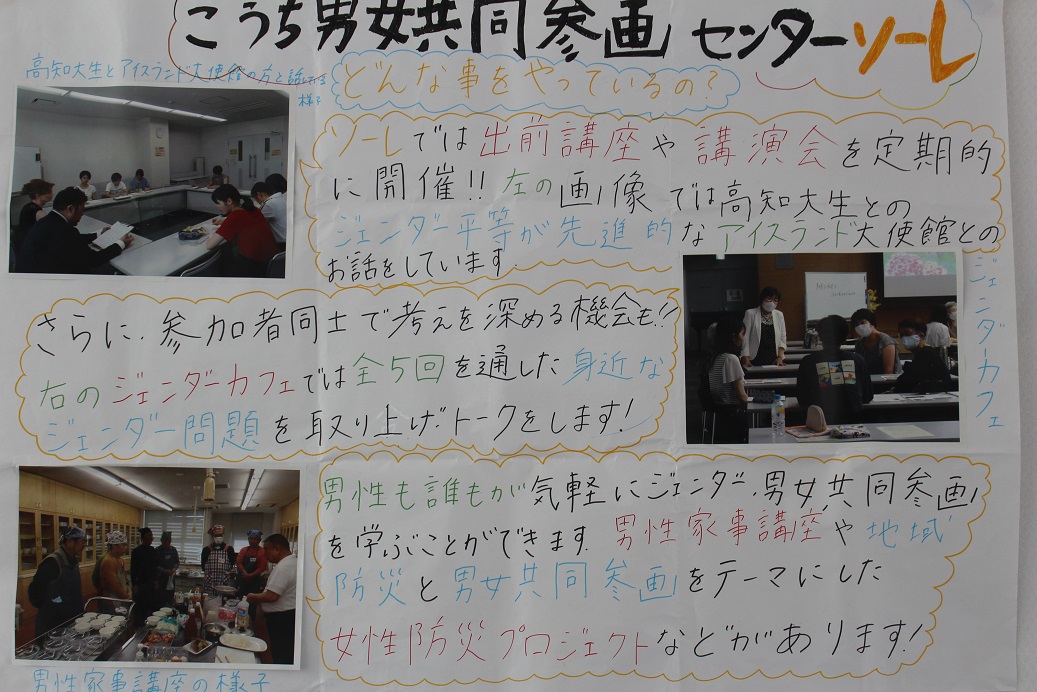 こうち男女共同参画 センターソーレ
高知大生とアイスランド大使館の方と話している
様子
どんな事をやっているの？
ソーレでは出前講座や講演会を定期的
に開催!! 左の画像では高知大生との
ジェンダー平等が先進的なアイスランド大使館との
お話をしています.
さらに、参加者同士で考えを深める機会も!!
右のジェンダーカフェでは全5回を通した身近な
ジェンダー問題を取り上げ、トークをします!
ジェンダーカフェ
男性も誰もが気軽にジェンダー、男女共同参画
を学ぶことができます. 男性家事講座や地域
防災と男女共同参画をテーマにした
女性防災プロジェクトなどがあります!
男性家事講座の様子